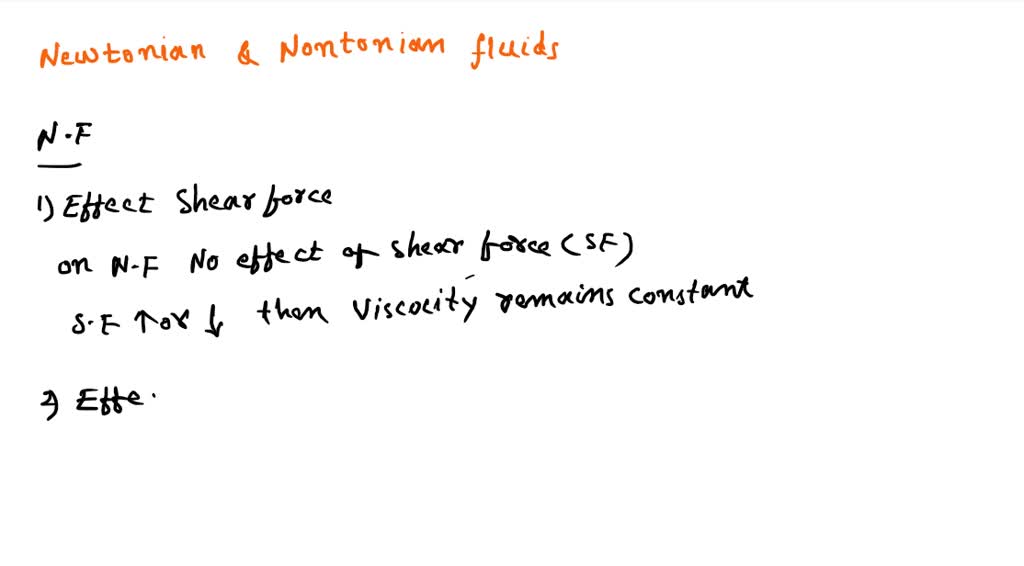 Newtonian & Nontonian fluids
N.F
1) Effect Shear force
on N.F No effect of shear force (SF)
S.F ↑ or ↓ then Viscocity remains constant
2) Effe.